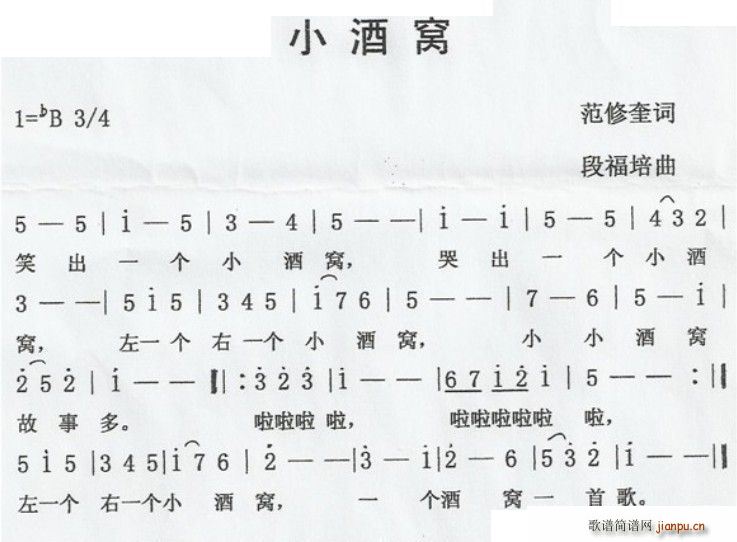 小酒窝
1=♭B 3/4 范修奎词
段福培曲
5 — 5 | i̇ — 5 | 3 — 4 | 5 — — | i̇ — i̇ | 5 — 5 | 4 3 2 |
笑 出 一 个 小 酒 窝, 哭 出 一 个 小 酒
3 — — | 5 i̇ 5 | 3 4 5 | i̇ 7 6 | 5 — — | 7 — 6 | 5 — i̇ |
窝, 左 一 个 右 一 个 小 酒 窝, 小 小 酒 窝
2̇ 5 2̇ | i̇ — — ‖: 3̇ 2̇ 3̇ | i̇ — — | 6 7 i̇ 2̇ i̇ | 5 — — :‖
故 事 多。 啦啦啦 啦, 啦啦啦啦啦 啦,
5 i̇ 5 | 3 4 5 | i̇ 7 6 | 2̇ — — | 3̇ — i̇ | 2̇ — 6 | 5 3̇ 2̇ | i̇ — — ‖
左一个 右一个小 酒 窝, 一 个酒 窝 一 首 歌。
歌谱简谱网 jianpu.cn